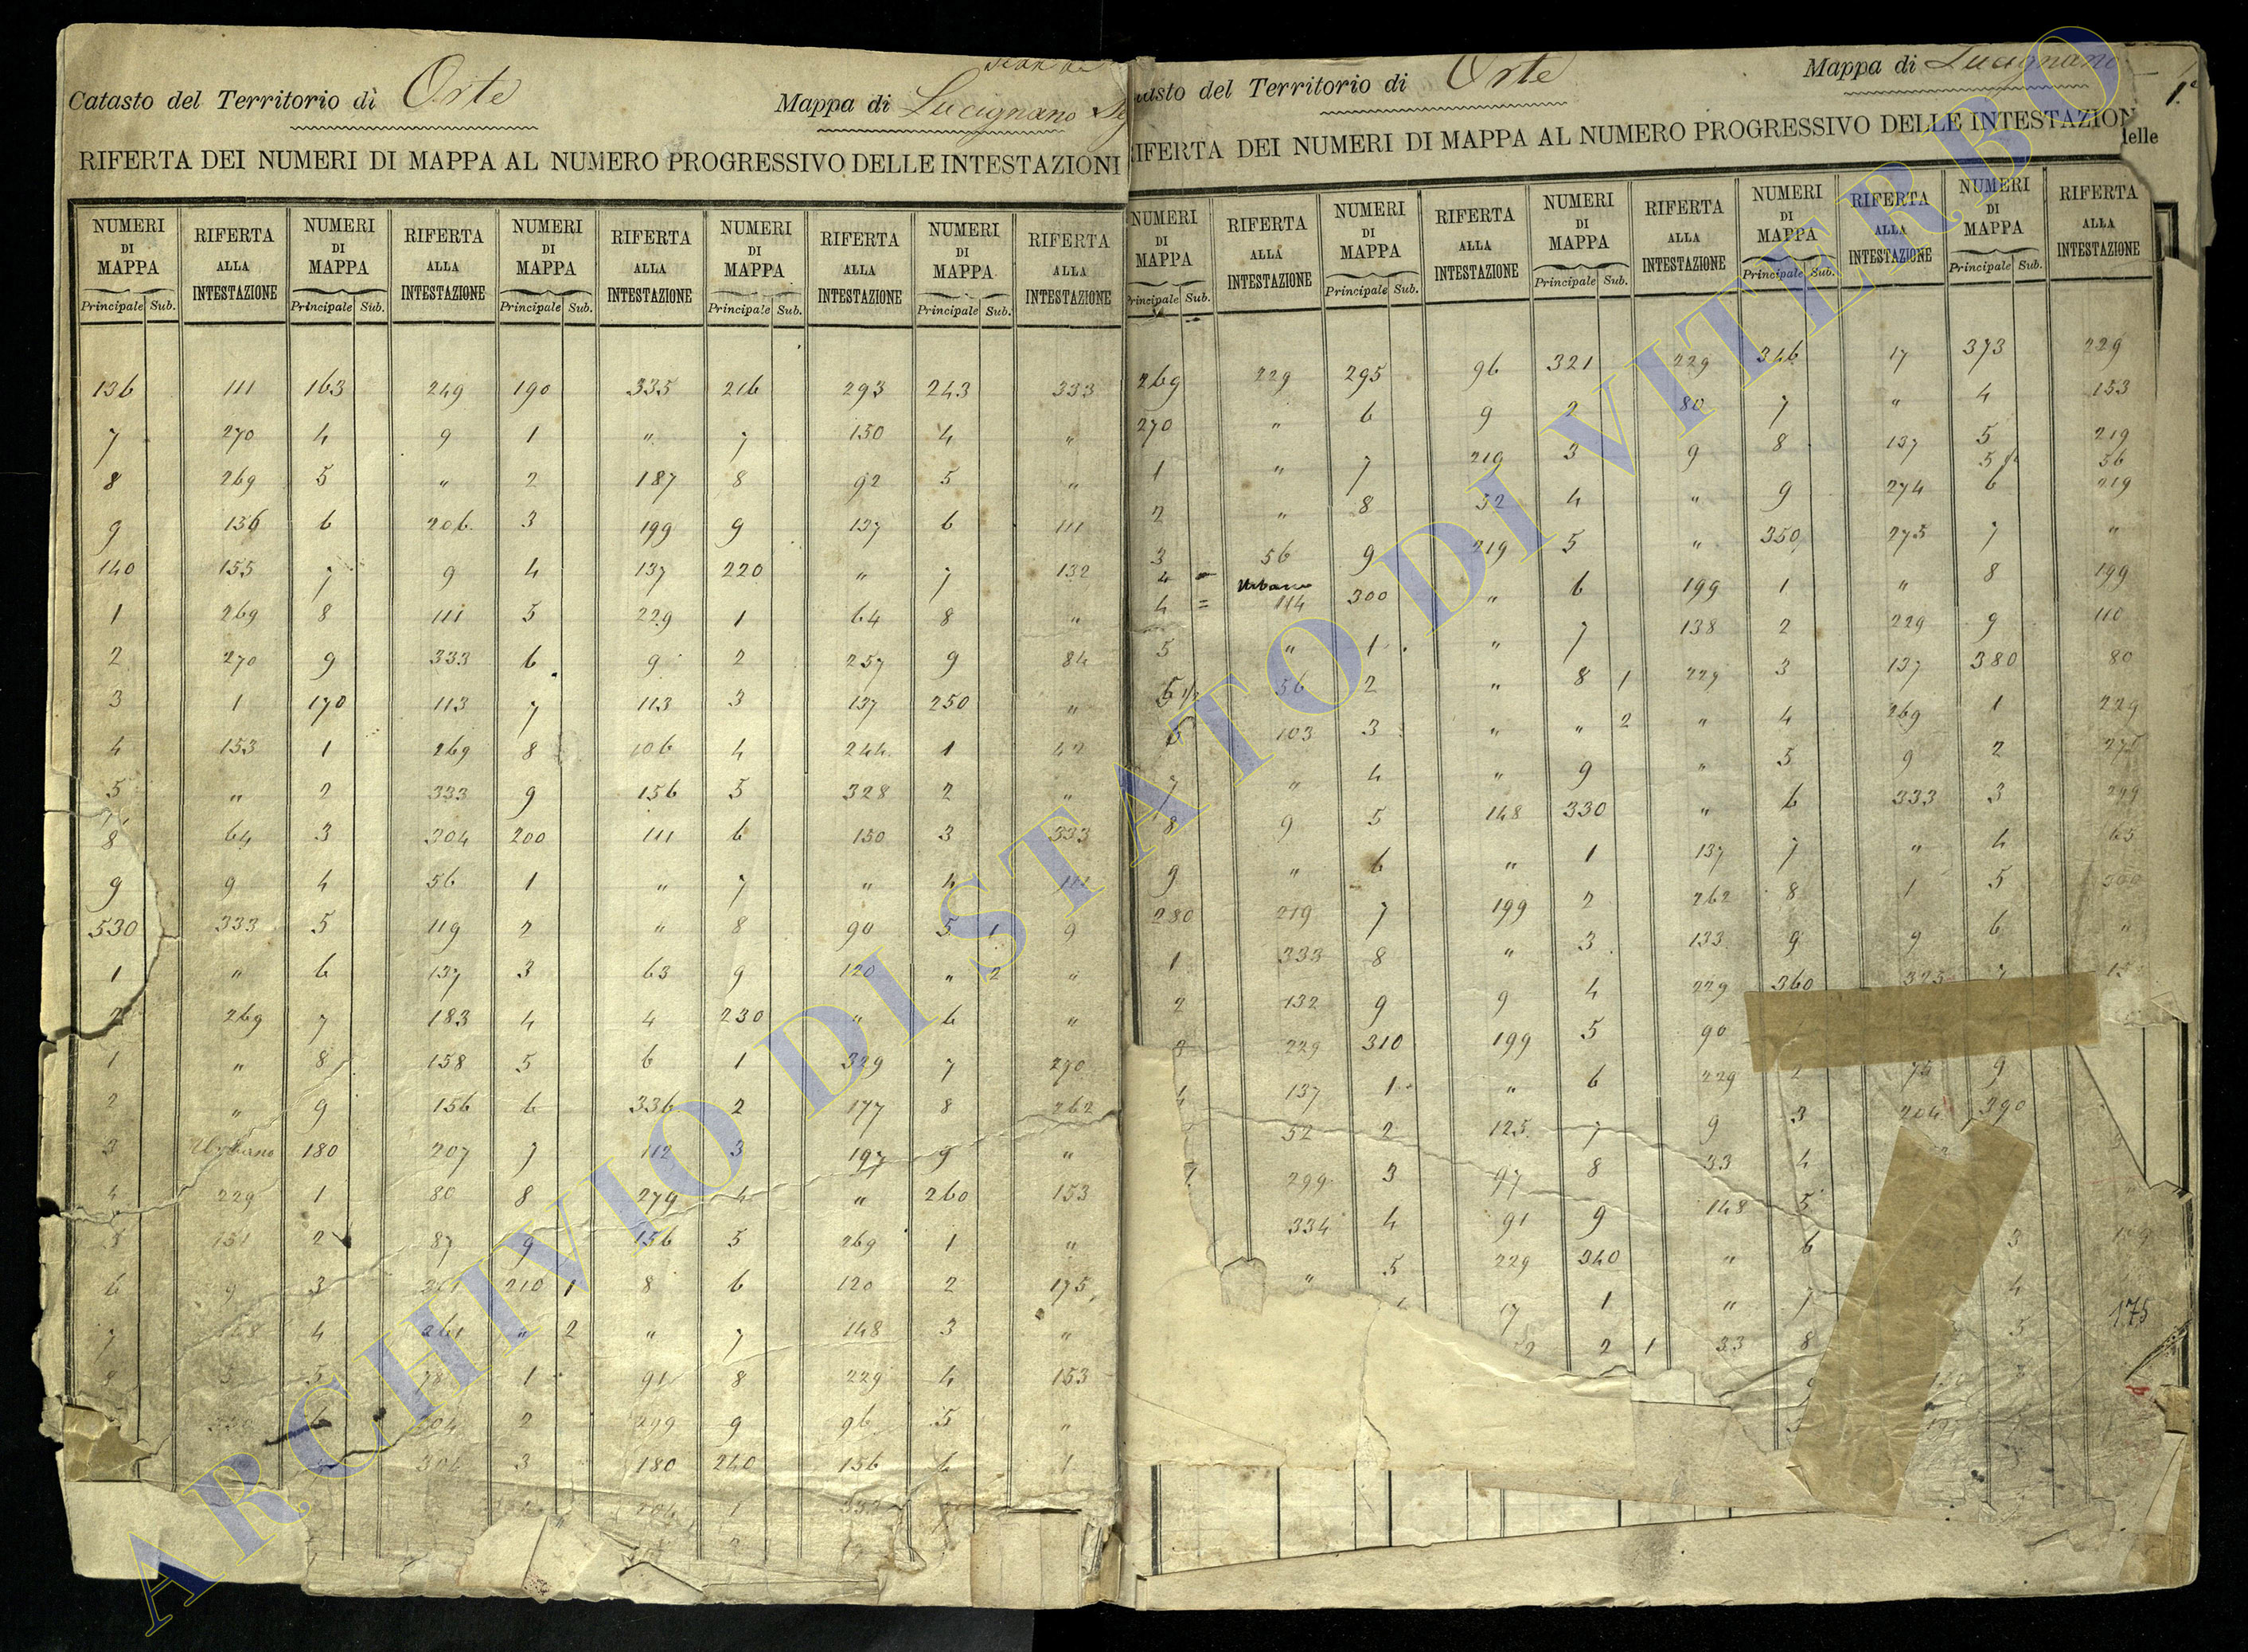 Catasto del Territorio dì Orte Mappa di Lucignano
RIFERTA DEI NUMERI DI MAPPA AL NUMERO PROGRESSIVO DELLE INTESTAZIONI
NUMERI DI MAPPA RIFERTA ALLA INTESTAZIONE NUMERI DI MAPPA RIFERTA ALLA INTESTAZIONE NUMERI DI MAPPA RIFERTA ALLA INTESTAZIONE NUMERI DI MAPPA RIFERTA ALLA INTESTAZIONE NUMERI DI MAPPA RIFERTA ALLA INTESTAZIONE
Principale Sub. Principale Sub. Principale Sub. Principale Sub. Principale Sub.
136 111 163 249 190 335 216 293 243 333
7 270 4 9 1 " 7 150 4 "
8 269 5 " 2 187 8 92 5 "
9 156 6 206 3 199 9 137 6 111
140 155 7 9 4 137 220 " 7 132
1 269 8 111 5 229 1 64 8 "
2 270 9 333 6 9 2 257 9 84
3 1 170 113 7 113 3 137 250 "
4 153 1 269 8 106 4 244 1 42
5 " 2 333 9 156 5 328 2 "
8 64 3 304 200 111 6 150 3 333
9 9 4 56 1 " 7 " 4 111
530 333 5 119 2 " 8 90 5 1 9
1 " 6 137 3 63 9 120 " 2 "
2 269 7 183 4 4 230 " 6 "
1 " 8 158 5 6 1 329 7 270
2 " 9 156 6 336 2 177 8 262
3 Urbano 180 207 7 112 3 197 9 "
4 229 1 80 8 279 4 " 260 153
5 151 2 87 9 156 5 269 1 "
6 9 3 210 1 8 6 120 2 175
7 148 4 261 " 2 " 7 148 3 "
5 5 78 1 91 8 229 4 153
6 204 2 299 9 96 5 "
304 3 180 240 156 6 1
204 1
asto del Territorio di Orte Mappa di Lucignano 1.
IFERTA DEI NUMERI DI MAPPA AL NUMERO PROGRESSIVO DELLE INTESTAZION
delle
NUMERI DI MAPPA RIFERTA ALLA INTESTAZIONE NUMERI DI MAPPA RIFERTA ALLA INTESTAZIONE NUMERI DI MAPPA RIFERTA ALLA INTESTAZIONE NUMERI DI MAPPA RIFERTA ALLA INTESTAZIONE NUMERI DI MAPPA RIFERTA ALLA INTESTAZIONE
Principale Sub. Principale Sub. Principale Sub. Principale Sub. Principale Sub.
269 229 295 96 321 229 346 17 373 229
270 " 6 9 2 80 7 " 4 153
1 " 7 219 3 9 8 137 5 219
5 1/2 56
2 " 8 32 4 " 9 274 6 219
3 56 9 219 5 " 350 275 7 "
4 - Urbano
4 = 114 300 " 6 199 1 " 8 199
5 " 1 " 7 138 2 229 9 110
5 1/2 56 2 " 8 1 229 3 137 380 80
6 103 3 " " 2 " 4 269 1 229
7 " 4 " 9 " 5 9 2 275
8 9 5 148 330 " 6 333 3 299
9 " 6 " 1 137 7 " 4 65
280 219 7 199 2 262 8 1 5 300
1 333 8 " 3 133 9 9 6 "
2 132 9 9 4 229 360 325 7
3 229 310 199 5 90
4 137 1 " 6 229 2 75 9
52 2 125 7 9 3 204 390
299 3 97 8 33 4
334 4 91 9 148 5
" 5 229 340 " 6 3
17 1 " 7 4
2 1 33 8 5 175
ARCHIVIO DI STATO DI VITERBO